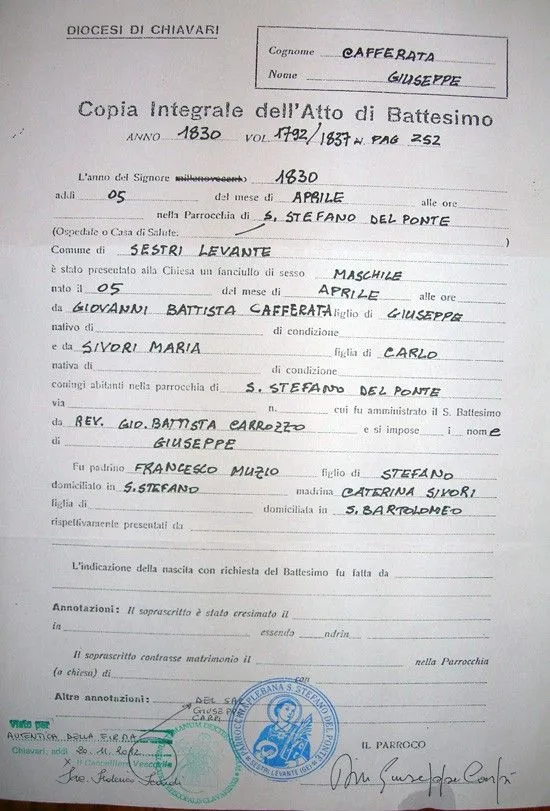 DIOCESI DI CHIAVARI
Cognome CAFFERATA
Nome GIUSEPPE
Copia Integrale dell'Atto di Battesimo
ANNO 1830 VOL. 1792/1837 N. PAG 252
L'anno del Signore millenovecento 1830
addì 05 del mese di APRILE alle ore
nella Parrocchia di S. STEFANO DEL PONTE
(Ospedale o Casa di Salute: )
Comune di SESTRI LEVANTE
è stato presentato alla Chiesa un fanciullo di sesso MASCHILE
nato il 05 del mese di APRILE alle ore
da GIOVANNI BATTISTA CAFFERATA figlio di GIUSEPPE
nativo di di condizione
e da SIVORI MARIA figlia di CARLO
nativa di di condizione
coniugi abitanti nella parrocchia di S. STEFANO DEL PONTE
via n. cui fu amministrato il S. Battesimo
da REV. GIO. BATTISTA CARROZZO e si impose i nome
di GIUSEPPE
Fu padrino FRANCESCO MUZIO figlio di STEFANO
domiciliato in S. STEFANO madrina CATERINA SIVORI
figlia di domiciliata in S. BARTOLOMEO
rispettivamente presentati da
L'indicazione della nascita con richiesta del Battesimo fu fatta da
Annotazioni: Il soprascritto è stato cresimato il
in essendo adrin
Il soprascritto contrasse matrimonio il nella Parrocchia
(o chiesa) di con
Altre annotazioni: DEL SAC.
GIUSEPPE
CARPI
Visto per
AUTENTICA DELLA FIRMA
Chiavari, addì 20.11.2012
Il Cancelliere Vescovile
PARROCCHIA PLEBANA S. STEFANO DEL PONTE
SESTRI LEVANTE (GE)
IL PARROCO
Giuseppe Carpi